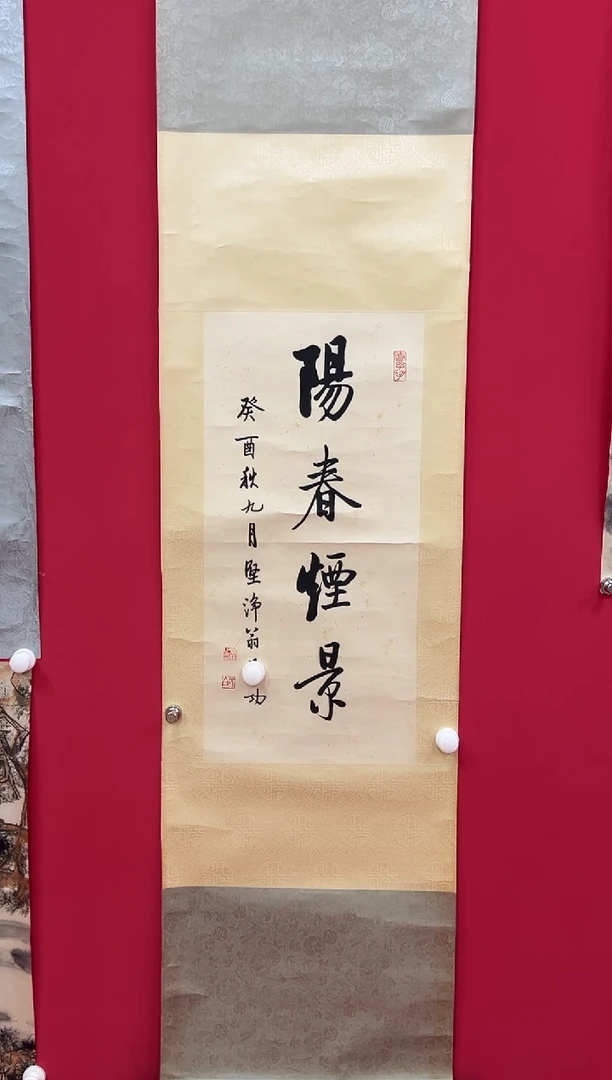 陽春煙景
癸酉秋九月堅淨翁功